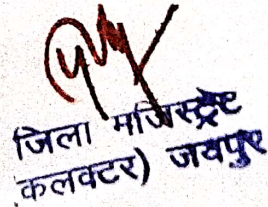 जिला मजिस्ट्रेट
कलक्टर) जयपुर